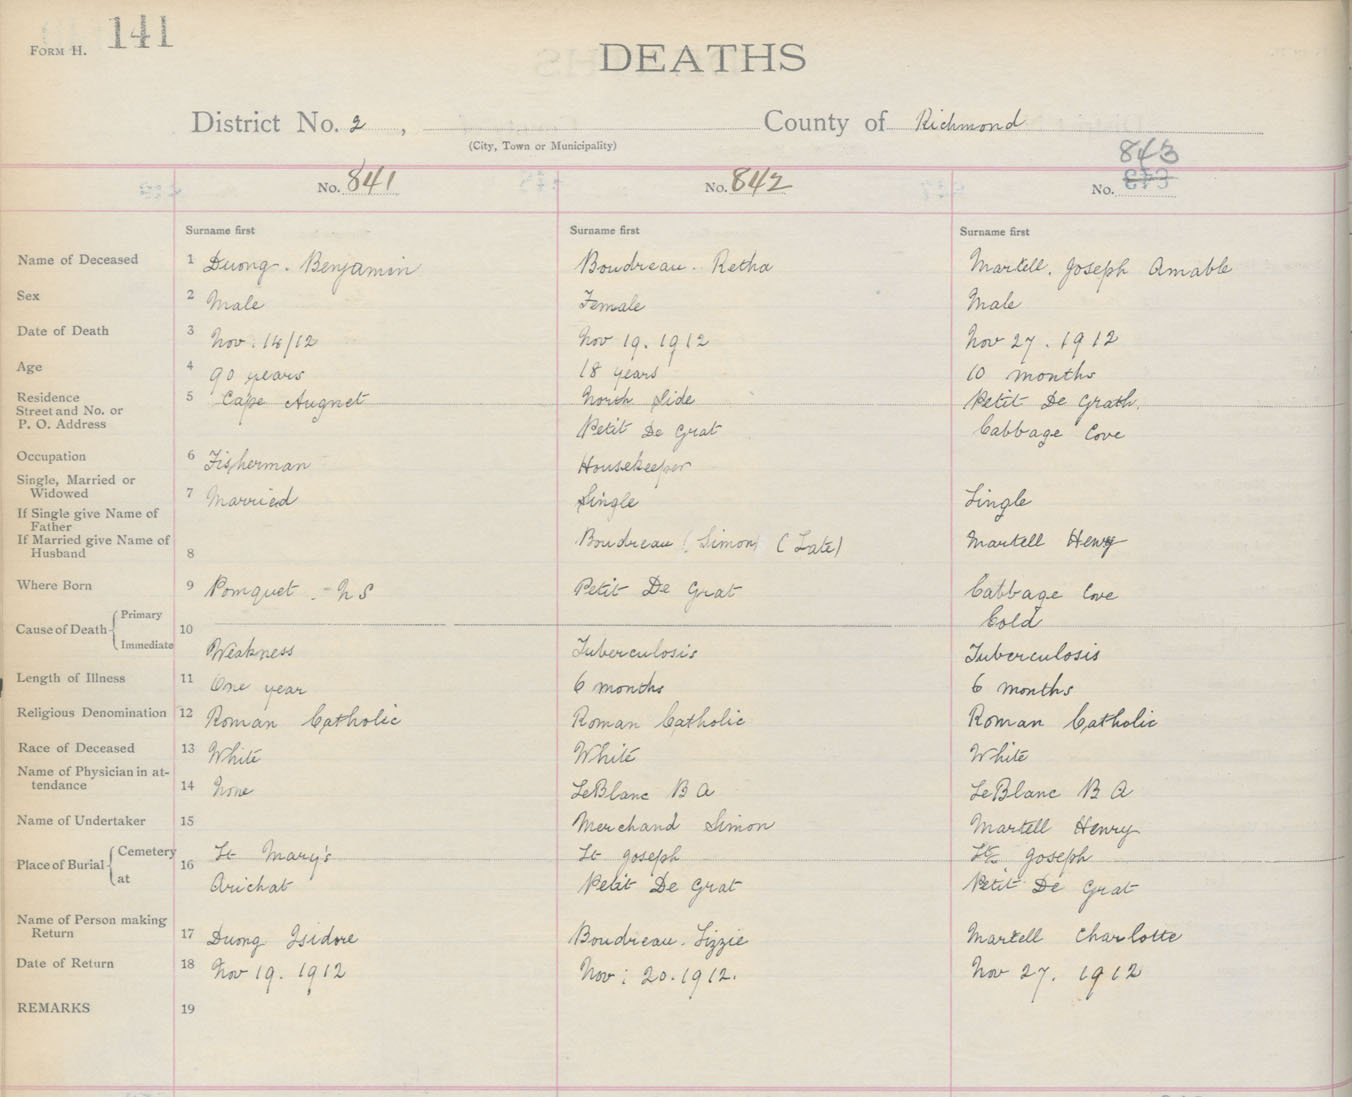 FORM H. 141
DEATHS
District No. 2, County of Richmond
(City, Town or Municipality)
843
No. 841 No. 842 No. 843
Surname first Surname first Surname first
Name of Deceased 1 Duong. Benjamin Boudreau. Retha Martell. Joseph Amable
Sex 2 Male Female Male
Date of Death 3 Nov. 14/12 Nov 19. 1912 Nov 27. 1912
Age 4 90 years 18 years 10 months
Residence 5 Cape Auguet North Side Petit De Grath.
Street and No. or
P. O. Address Petit De Grat Cabbage Cove
Occupation 6 Fisherman Housekeeper
Single, Married or
Widowed 7 Married Single Single
If Single give Name of
Father
If Married give Name of Boudreau (Simon) (Late) Martell Henry
Husband 8
Where Born 9 Pomquet. - N S Petit De Grat Cabbage Cove
Cause of Death Primary 10 Cold
Immediate Weakness Tuberculosis Tuberculosis
Length of Illness 11 One year 6 months 6 months
Religious Denomination 12 Roman Catholic Roman Catholic Roman Catholic
Race of Deceased 13 White White White
Name of Physician in at-
tendance 14 None LeBlanc B A LeBlanc B A
Name of Undertaker 15 Merchand Simon Martell Henry
Place of Burial Cemetery 16 St Mary's St Joseph St Joseph
at Arichat Petit De Grat Petit De Grat
Name of Person making
Return 17 Duong Isidore Boudreau. Lizzie Martell Charlotte
Date of Return 18 Nov 19. 1912 Nov: 20. 1912. Nov 27. 1912
REMARKS 19